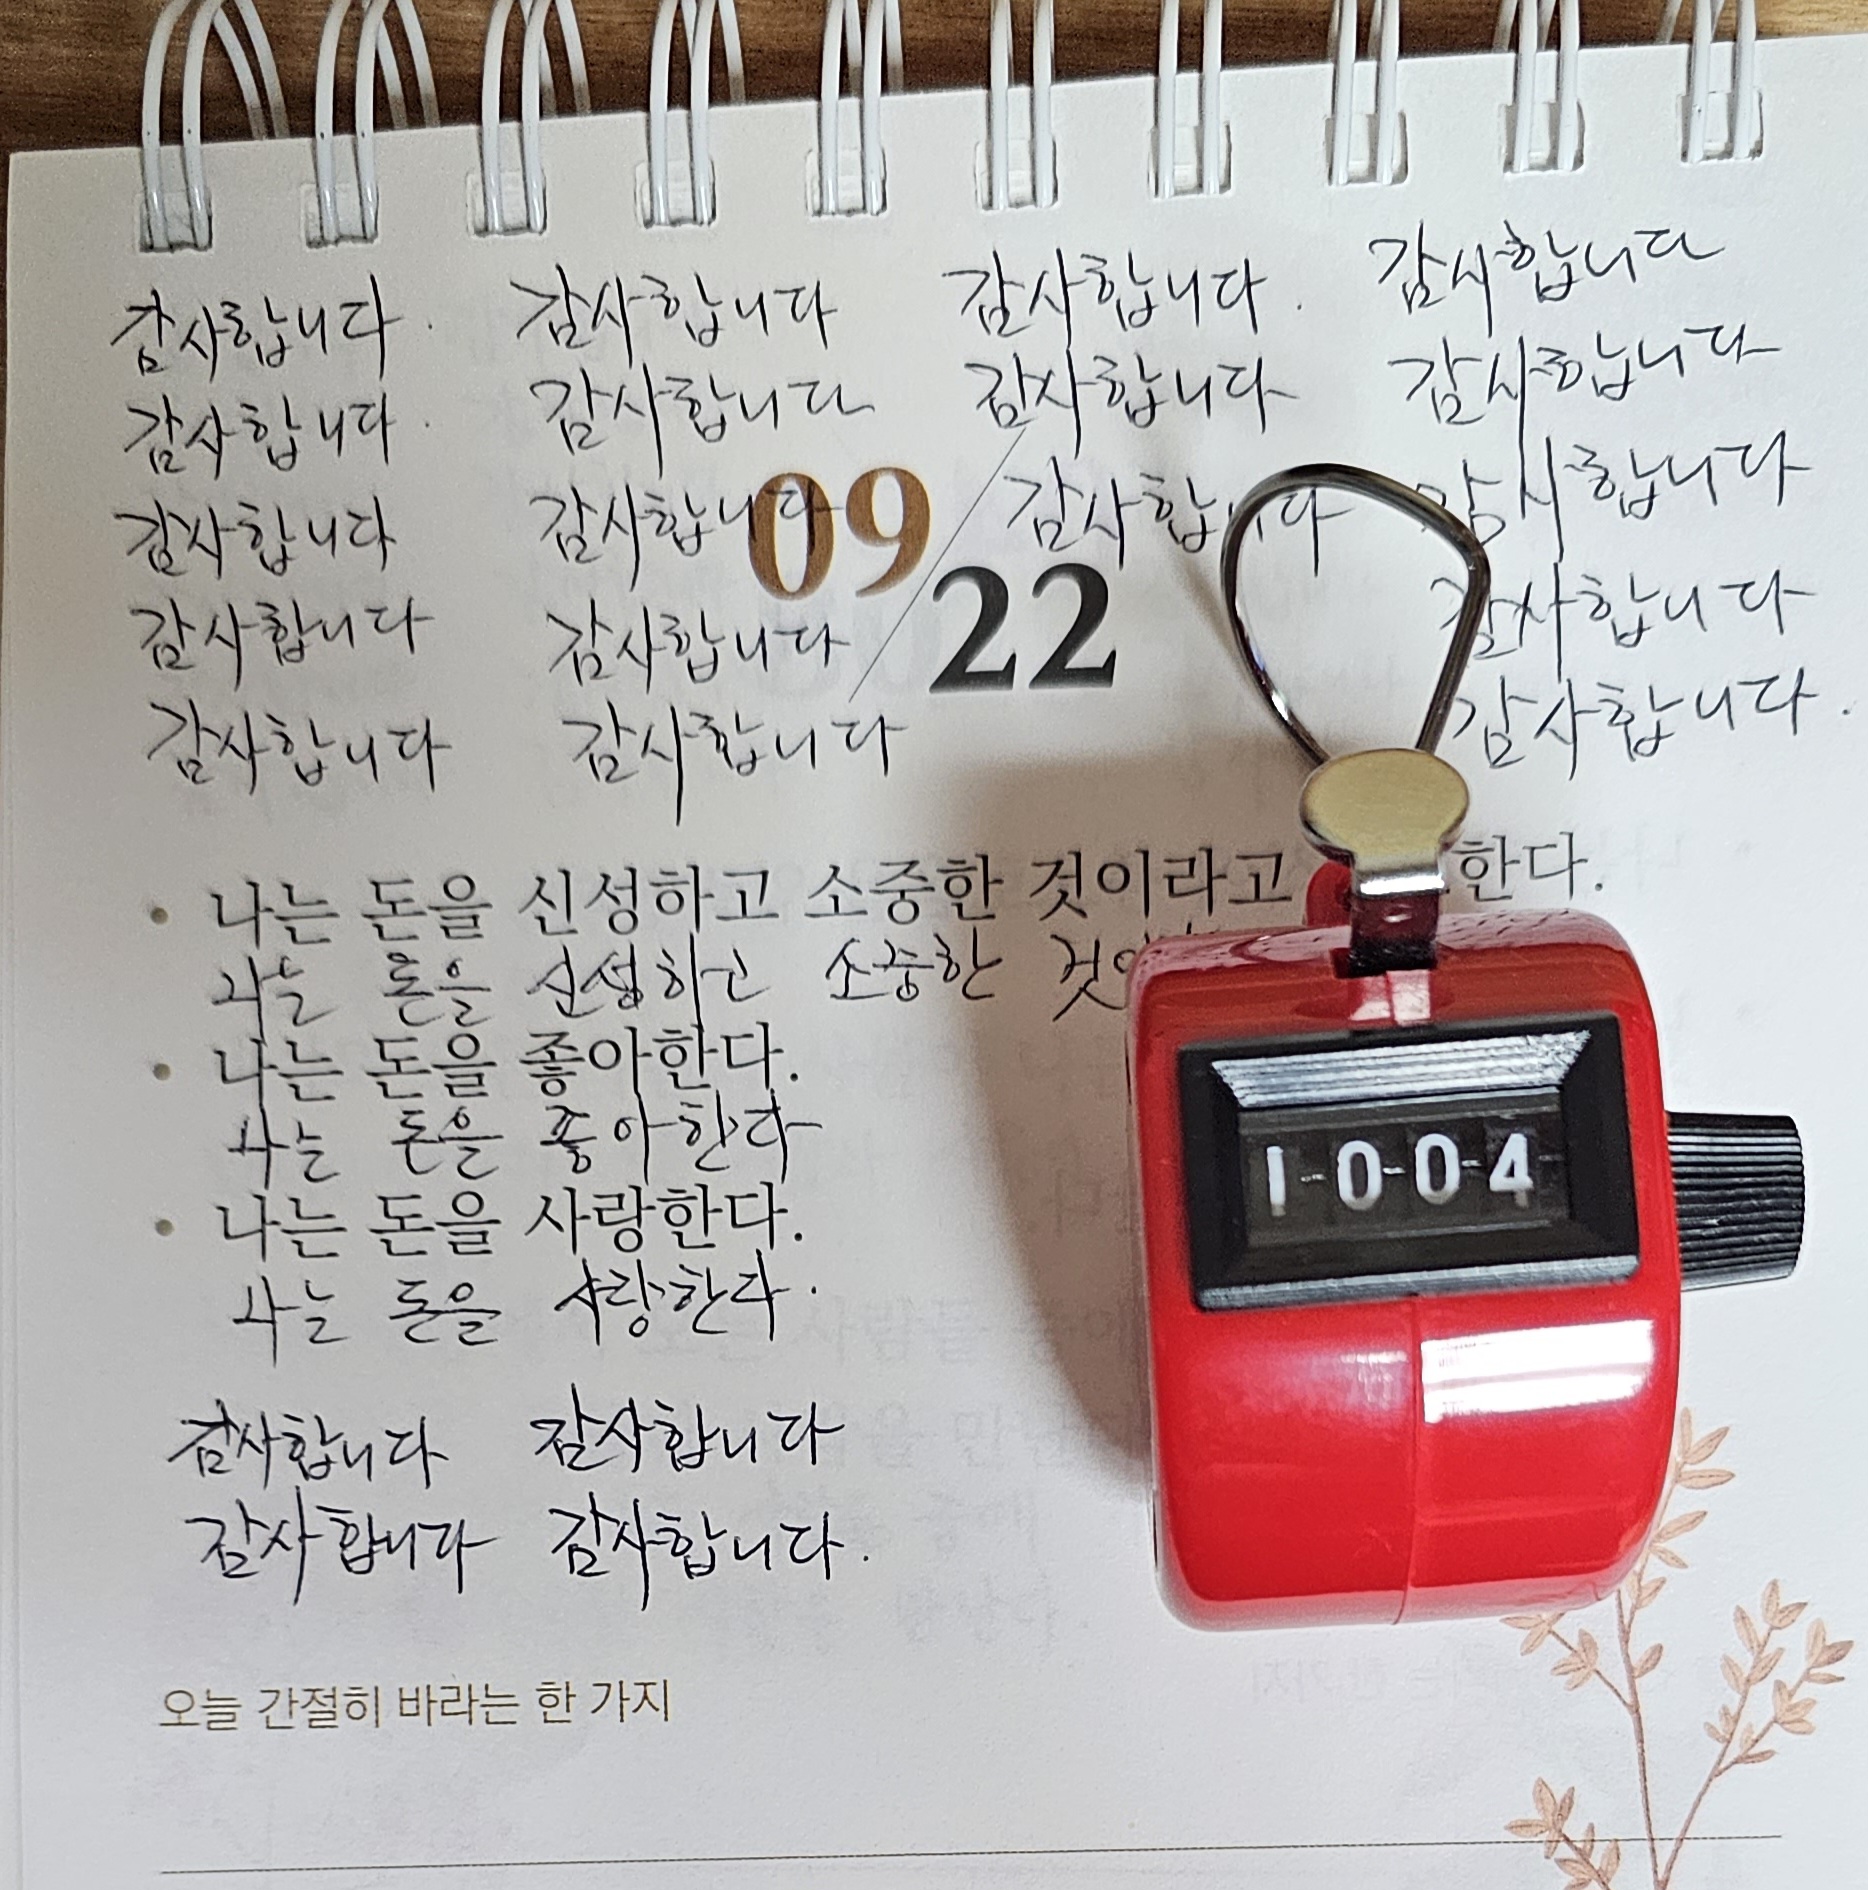 감사합니다. 감사합니다 감사합니다. 감사합니다
감사합니다. 감사합니다 감사합니다 감사합니다
감사합니다 감사합니다 감사합니다 감사합니다
09
22
감사합니다 감사합니다 감사합니다
감사합니다 감사합니다 감사합니다.
• 나는 돈을 신성하고 소중한 것이라고 한다.
나는 돈을 신성하고 소중한
• 나는 돈을 좋아한다.
나는 돈을 좋아한다
• 나는 돈을 사랑한다.
나는 돈을 사랑한다.
1004
감사합니다 감사합니다
감사합니다 감사합니다.
오늘 간절히 바라는 한 가지